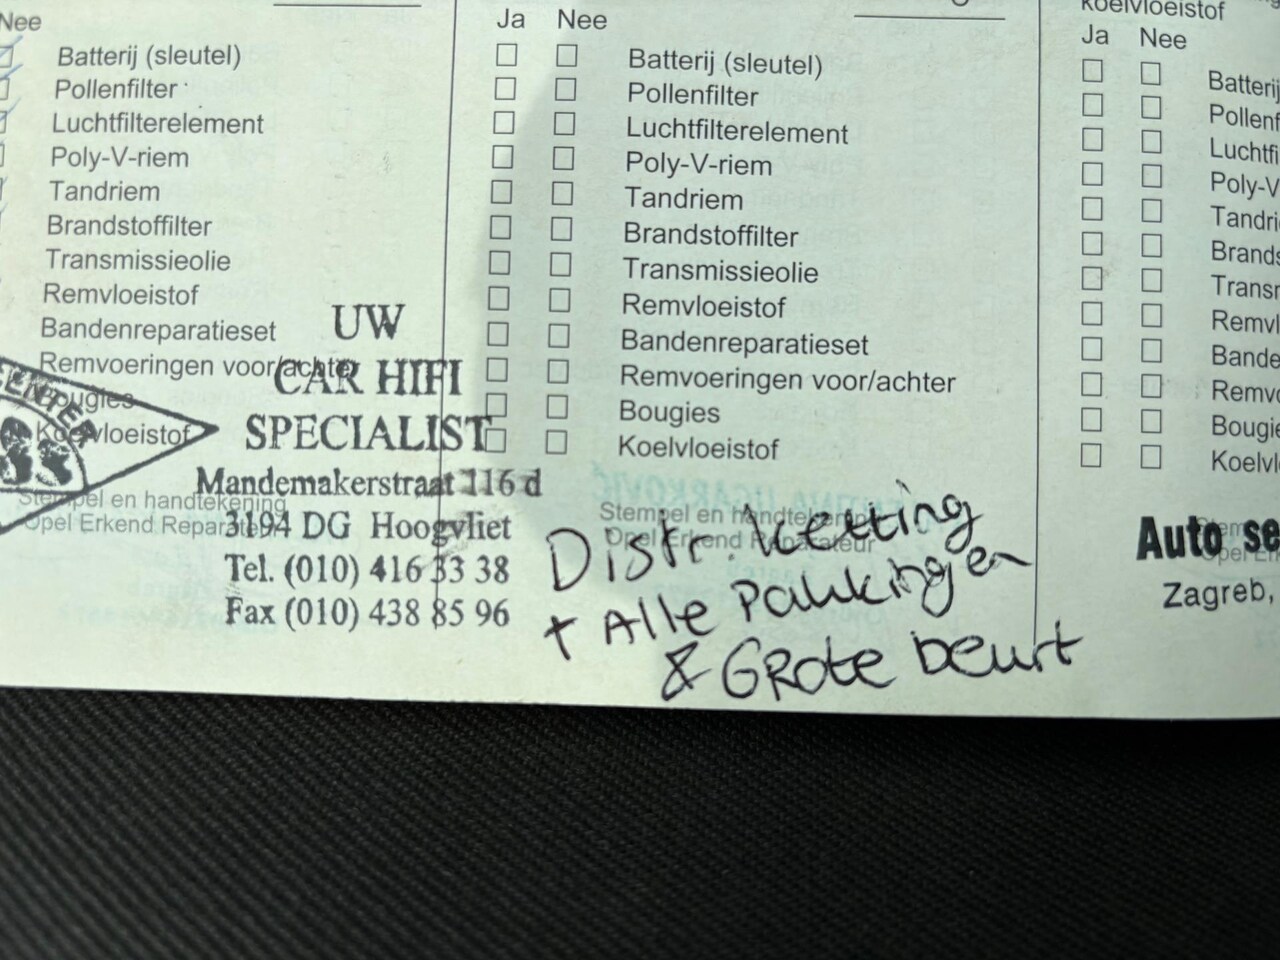 Nee
Batterij (sleutel)
Pollenfilter
Luchtfilterelement
Poly-V-riem
Tandriem
Brandstoffilter
Transmissieolie
Remvloeistof
Bandenreparatieset
Remvoeringen voor/achter
Bougies
Koelvloeistof
Stempel en handtekening
Opel Erkend Reparateur
UW
CAR HIFI
SPECIALIST
Mandemakerstraat 116 d
3194 DG Hoogvliet
Tel. (010) 416 33 38
Fax (010) 438 85 96
Ja Nee
Batterij (sleutel)
Pollenfilter
Luchtfilterelement
Poly-V-riem
Tandriem
Brandstoffilter
Transmissieolie
Remvloeistof
Bandenreparatieset
Remvoeringen voor/achter
Bougies
Koelvloeistof
Stempel en handtekening
Opel Erkend Reparateur
Distr. ketting
+ Alle Pakkingen
& Grote beurt
koelvloeistof
Ja Nee
Batterij
Pollenf
Luchtfi
Poly-V
Tandri
Brands
Transr
Remvl
Bande
Remvo
Bougie
Koelvl
Auto se
Zagreb,